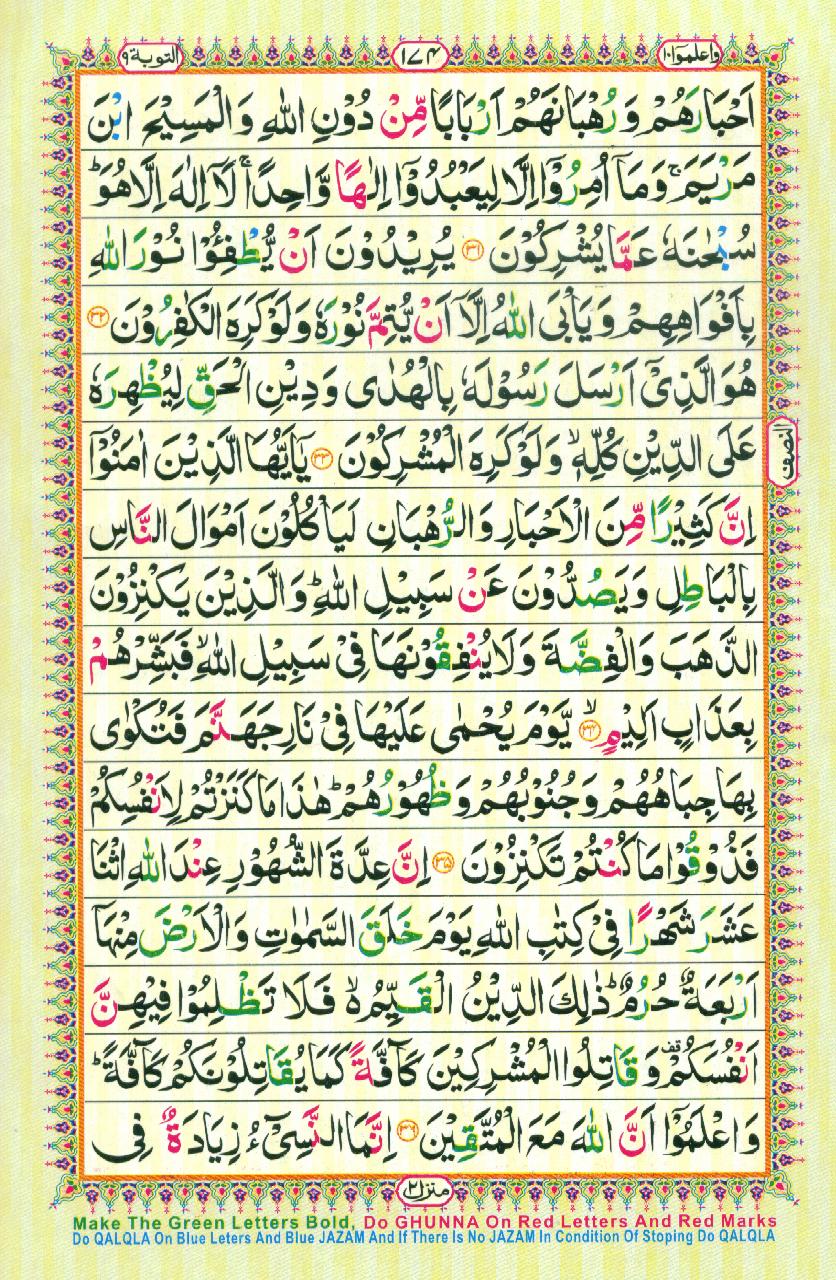 واعلموا۱۰ ۱۷۴ التوبة۹
اَحْبَارَهُمْ وَ رُهْبَانَهُمْ اَرْبَابًا مِّنْ دُوْنِ اللّٰهِ وَ الْمَسِيْحَ ابْنَ
مَرْيَمَ ۚ وَ مَاۤ اُمِرُوْۤا اِلَّا لِيَعْبُدُوْۤا اِلٰهًا وَّاحِدًا ۚ لَاۤ اِلٰهَ اِلَّا هُوَ ؕ
سُبْحٰنَهٗ عَمَّا يُشْرِكُوْنَ ۝۳۱ يُرِيْدُوْنَ اَنْ يُّطْفِـُٔوْا نُوْرَ اللّٰهِ
بِاَفْوَاهِهِمْ وَ يَاْبَى اللّٰهُ اِلَّاۤ اَنْ يُّتِمَّ نُوْرَهٗ وَ لَوْ كَرِهَ الْكٰفِرُوْنَ ۝۳۲
هُوَ الَّذِيْۤ اَرْسَلَ رَسُوْلَهٗ بِالْهُدٰى وَ دِيْنِ الْحَقِّ لِيُظْهِرَهٗ
عَلَى الدِّيْنِ كُلِّهٖ ۙ وَ لَوْ كَرِهَ الْمُشْرِكُوْنَ ۝۳۳ يٰۤاَيُّهَا الَّذِيْنَ اٰمَنُوْۤا
النصف
اِنَّ كَثِيْرًا مِّنَ الْاَحْبَارِ وَ الرُّهْبَانِ لَيَاْكُلُوْنَ اَمْوَالَ النَّاسِ
بِالْبَاطِلِ وَ يَصُدُّوْنَ عَنْ سَبِيْلِ اللّٰهِ ؕ وَ الَّذِيْنَ يَكْنِزُوْنَ
الذَّهَبَ وَ الْفِضَّةَ وَ لَا يُنْفِقُوْنَهَا فِيْ سَبِيْلِ اللّٰهِ ۙ فَبَشِّرْهُمْ
بِعَذَابٍ اَلِيْمٍ ۙ۝۳۴ يَّوْمَ يُحْمٰى عَلَيْهَا فِيْ نَارِ جَهَنَّمَ فَتُكْوٰى
بِهَا جِبَاهُهُمْ وَ جُنُوْبُهُمْ وَ ظُهُوْرُهُمْ ؕ هٰذَا مَا كَنَزْتُمْ لِاَنْفُسِكُمْ
فَذُوْقُوْا مَا كُنْتُمْ تَكْنِزُوْنَ ۝۳۵ اِنَّ عِدَّةَ الشُّهُوْرِ عِنْدَ اللّٰهِ اثْنَا
عَشَرَ شَهْرًا فِيْ كِتٰبِ اللّٰهِ يَوْمَ خَلَقَ السَّمٰوٰتِ وَ الْاَرْضَ مِنْهَاۤ
اَرْبَعَةٌ حُرُمٌ ؕ ذٰلِكَ الدِّيْنُ الْقَيِّمُ ۙ۬ فَلَا تَظْلِمُوْا فِيْهِنَّ
اَنْفُسَكُمْ قف وَ قَاتِلُوا الْمُشْرِكِيْنَ كَآفَّةً كَمَا يُقَاتِلُوْنَكُمْ كَآفَّةً ؕ
وَ اعْلَمُوْۤا اَنَّ اللّٰهَ مَعَ الْمُتَّقِيْنَ ۝۳۶ اِنَّمَا النَّسِيْٓءُ زِيَادَةٌ فِي
منزل۲
Make The Green Letters Bold, Do GHUNNA On Red Letters And Red Marks
Do QALQLA On Blue Leters And Blue JAZAM And If There Is No JAZAM In Condition Of Stoping Do QALQLA